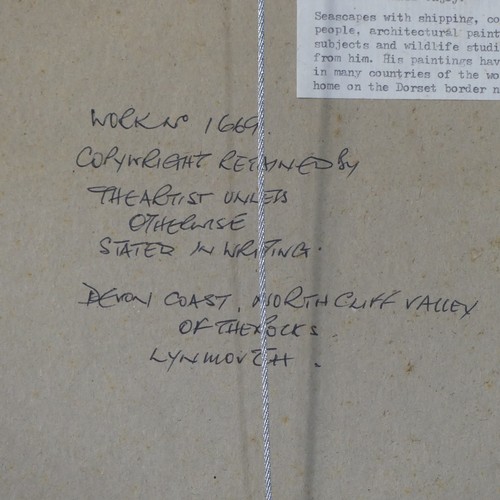 Seascapes with shipping, co
people, architectural paint
subjects and wildlife studi
from him. His paintings hav
in many countries of the wo
home on the Dorset border n
WORK No 1669.
COPYWRIGHT RETAINED BY
THE ARTIST UNLESS
OTHERWISE
STATED IN WRITING.
DEVON COAST. NORTH CLIFF VALLEY
OF THE ROCKS.
LYNMOUTH.